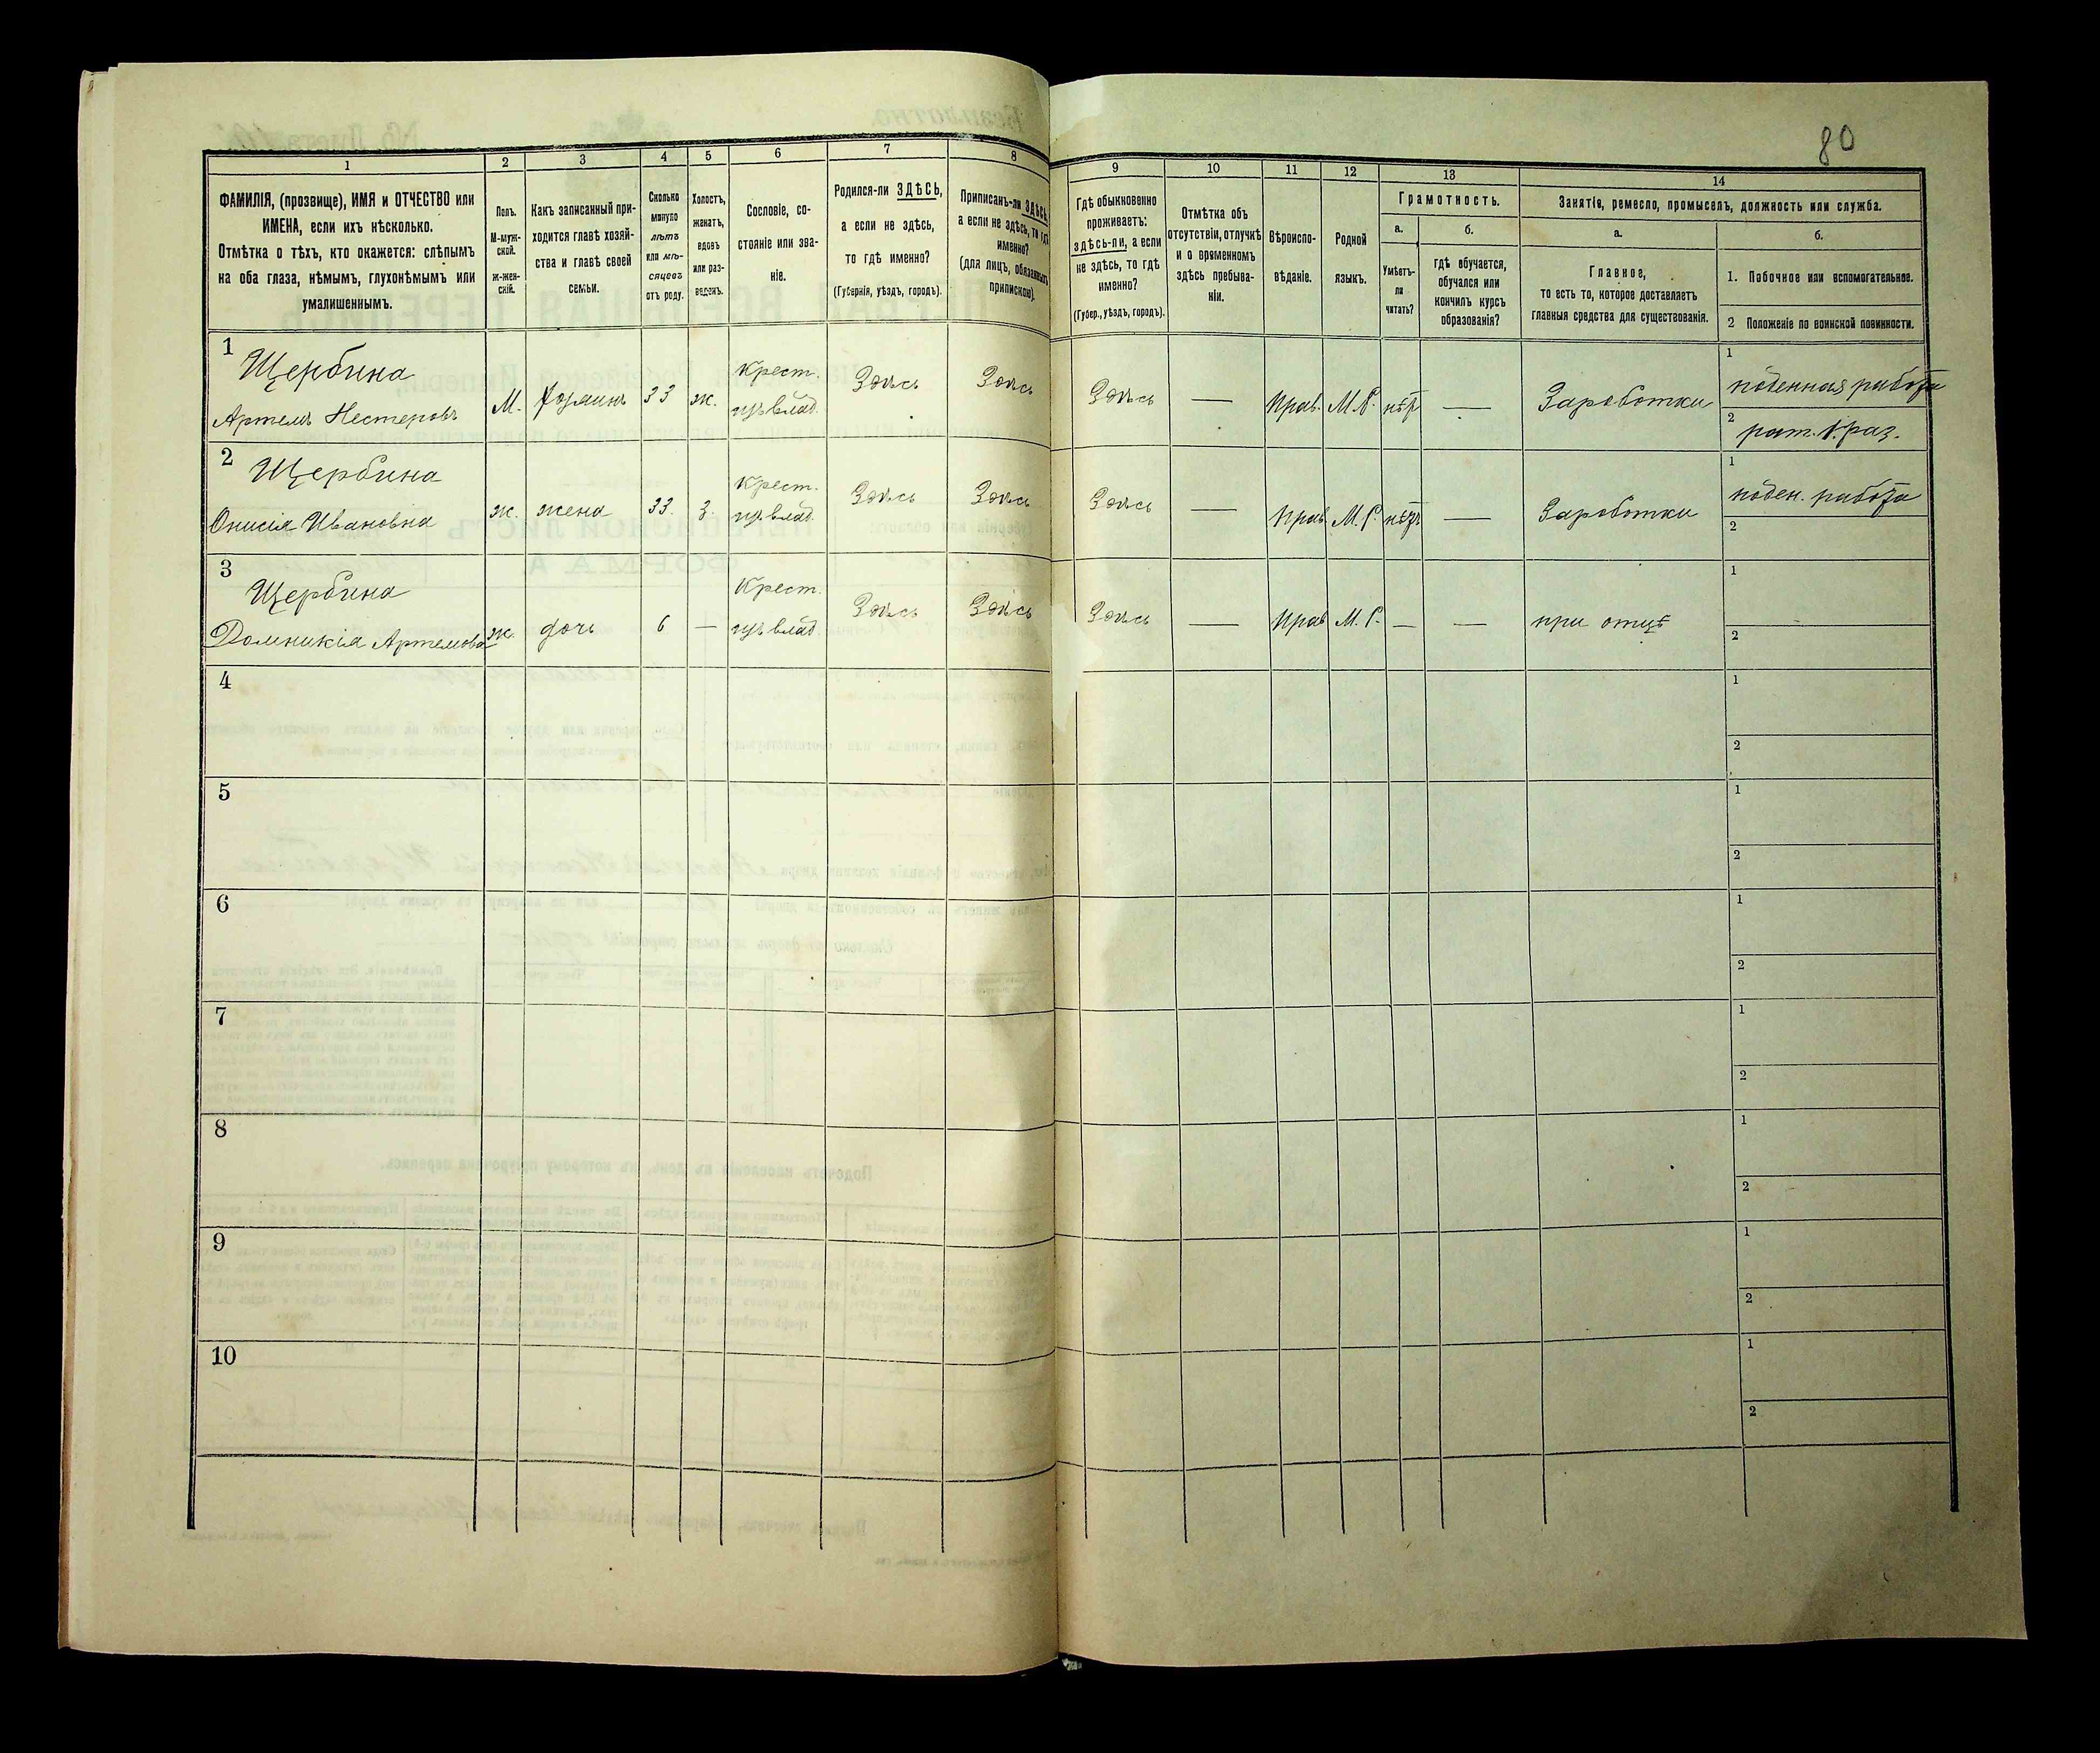 80
1 2 3 4 5 6 7 8 9 10 11 12 13 14
ФАМИЛІЯ, (прозвище), ИМЯ и ОТЧЕСТВО или
ИМЕНА, если ихъ нѣсколько.
Отмѣтка о тѣхъ, кто окажется: слѣпымъ
на оба глаза, нѣмымъ, глухонѣмымъ или
умалишеннымъ.
Полъ.
М-муж-
ской.
ж-жен-
скій.
Какъ записанный при-
ходится главѣ хозяй-
ства и главѣ своей
семьи.
Сколько
минуло
лѣтъ
или мѣ-
сяцевъ
отъ роду.
Холостъ,
женатъ,
вдовъ
или раз-
веденъ.
Сословіе, со-
стояніе или зва-
ніе.
Родился-ли ЗДѢСЬ,
а если не здѣсь,
то гдѣ именно?
(Губернія, уѣздъ, городъ).
Приписанъ-ли ЗДѢСЬ,
а если не здѣсь, то гдѣ
именно?
(для лицъ, обязанныхъ
припискою).
Гдѣ обыкновенно
проживаетъ:
здѣсь-ли, а если
не здѣсь, то гдѣ
именно?
(Губер., уѣздъ, городъ).
Отмѣтка объ
отсутствіи, отлучкѣ
и о временномъ
здѣсь пребыва-
ніи.
Вѣроиспо-
вѣданіе.
Родной
языкъ.
Грамотность.
а.
Умѣетъ-
ли
читать?
б.
гдѣ обучается,
обучался или
кончилъ курсъ
образованія?
Занятіе, ремесло, промыселъ, должность или служба.
а.
Главное,
то есть то, которое доставляетъ
главныя средства для существованія.
б.
1. Побочное или вспомогательное.
2 Положеніе по воинской повинности.
1 Щербина Крест. 1 поденная работа
Артемъ Нестеровъ М. 33 ж. изъ влад. Здѣсь Здѣсь Здѣсь — Прав. М.Р. — Заработки
2 рат. 1. раз.
2 Щербина Крест. 1 поден. работа
Онисія Ивановна ж. жена 33. з. изъ влад. Здѣсь Здѣсь Здѣсь — Прав. М.Р. — Заработки
2
3 Щербина Крест. 1
Домникія Артемова ж. дочь 6 — изъ влад. Здѣсь Здѣсь Здѣсь — Прав М.Р. — — при отцѣ
2
4 1
2
5 1
2
6 1
2
7 1
2
8 1
2
9 1
2
10 1
2